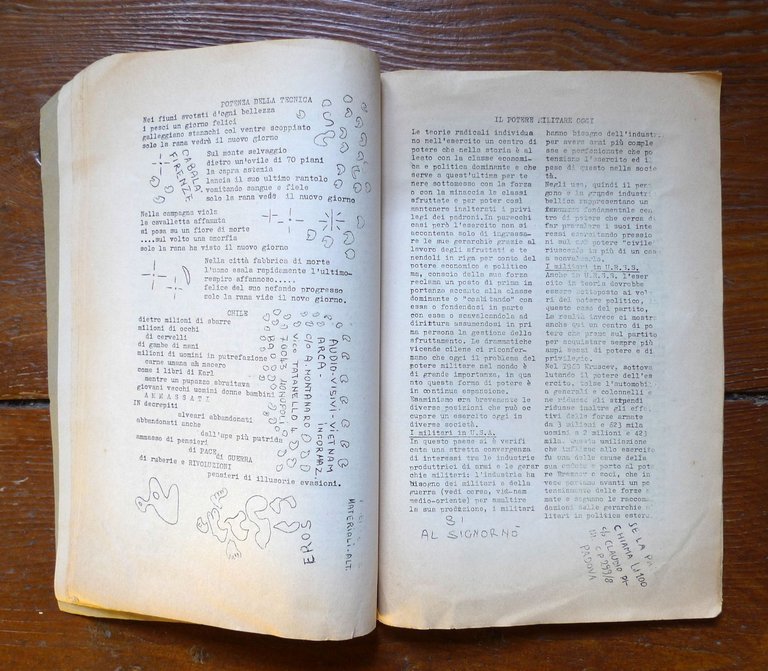 POTENZA DELLA TECNICA
Nei fiumi svotati d'ogni bellezza
i pesci un giorno felici
galleggiano stanachi col ventre scoppiato
solo la rana vedrà il nuovo giorno
CABALA'
FIRENZE
Sul monte selvaggio
dietro un'ovile di 70 piani
la capra astemia
lancia il suo ultimo rantolo
vomitando sangue e fiele
solo la rana vede il nuovo giorno
Nella campagna viola
la cavalletta affamata
si posa su un fiore di morte
....sul volto una smorfia
solo la rana ha visto il nuovo giorno
Nella città fabbrica di morte
l'uomo esala rapidamente l'ultimo
respiro affannoso.....
felice del suo nefando progresso
solo la rana vide il novo giorno.
CHILE
dietro milioni di sbarre
milioni di occhi
di cervelli
di gambe di mani
milioni di uomini in putrefazione
carne umana ah macero
come i libri di Karl
mentre un pupazzo sbraitava
giovani vecchi uomini donne bambini
AMMASSATI
IN decrepiti
alveari abbandonati
abbandonati anche
dall'ape più putrida
ammasso di pensieri
di PACE
di GUERRA
di ruberie e RIVOLUZIONI
pensieri di illusorie evasioni.
AUDIO-VISIVI-VIETNAM
ARCA. INFORMAZ.
C/O A. MONTANARO
VICO TATANELLO 4
70043 MONOPOLI
BA
EROS
MATERIALI-ALT.
IL POTERE MILITARE OGGI
Le teorie radicali individua
no nell'esercito un centro di
potere che nella storia è al
leato con la classe economi-
a e politica dominante e che
serve a quest'ultima per te
nere sottomesso con la forza
o con la minaccia le classi
sfruttate e per poter così
mantenere inalterati i privi
legi dei padroni.In parecchi
casi però l'esercito non si
accontenta solo di ingrassa-
re le sue gerarchie grazie al
lavoro degli sfruttati e te
nendoli in riga per conto del
potere economico e politico
ma, conscio della sua forza
reclama un posto di prima im
portanza accanto alla classe
dominante o "coabitando" con
essa o fondendosi in parte
con essa o scavalcandola ad
dirittura assumendosi in pri
ma persona la gestione dello
sfruttamento. Le drammatiche
vicende cilene ci riconfer-
mano che oggi il problema del
potere militare nel mondo è
di grande importanza, in quan
to questa forma di potere è
in continua espansione.
Esaminiamo ora brevemente le
diverse posizioni che può oc
cupare un esercito oggi in
diverse società.
I militari in U.S.A.
In questo paese si è verifi
cata una stretta convergenza
di interessi tra le industrie
produttrici di armi e le gerar
chie militari: l'industria ha
bisogno dei militari e della
guerra (vedi corea, viet-nam
medio-oriente) per smaltire
la sua produzione, i militari
hanno bisogno dell'industri
per avere armi più comple
sse e perfezionate che po
tenziano l'esercito ed il
peso di questo nella socie
tà.
Negli usa, quindi il
e la grande industria
bellica rappresentano un
fenomeno fondamentale cen
tro di potere che cerca di
far prevalere i suoi inte
ressi esercitando pressio
ni sul potere "civile"
I militari in U.R.S.S.
Anche in U.R.S.S. l'eser
cito in teoria dovrebbe
essere sottoposto al vole
ri del potere politico, in
questo caso del partito,
la realtà invece ci mostra
anche qui un centro di po
tere che preme sul partito
per acquistare sempre più
ampi spazi di potere e di
privilegio.
Nel 1963 Kruscev, sottova
lutando il potere dell'es
ercito, tolse l'automobile
a generali e colonnelli e
ne ridusse gli stipendi
ridusse inoltre gli effet
tivi delle forze armate
da 3 milioni e 623 mila
uomini a 2 milioni e 423
mila. Questa umiliazione
che inflisse allo esercito
fu una delle cause della
sua caduta e portò al pote
re Breznev e soci, che in
vece puntano avanti un po
tenziamento delle forze a
rmate e seguono le raccoman
dazioni delle gerarchie m
ilitari in politica estera.
SI
AL SIGNORNÒ
SE LA
CHIAMA
c/o CLAUDIO
PADOVA